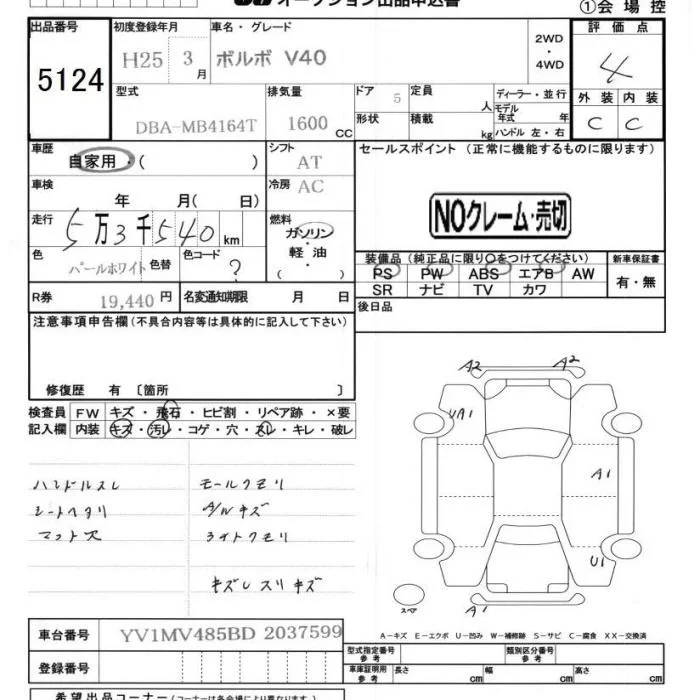 オークション出品申込書
①会 場 控
出品番号
5124
初度登録年月
H25 3 月
車名・グレード
ボルボ V40
2WD
・
4WD
評 価 点
4
型式
DBA-MB4164T
排気量
1600 CC
ドア 5
定員 人
ディーラー・並行
モデル
年式 年
形状
積載 kg
ハンドル 左・右
外 装 内 装
C C
車歴
自家用・( )
シフト
AT
セールスポイント (正常に機能するものに限ります)
車検
年 月( 日)
冷房 AC
NOクレーム・売切
走行
5万3千540km
燃料
ガソリン
・
軽 油
色
パールホワイト
色替
色コード
?
装備品 (純正品に限り○をつけてください)
新車保証書
PS PW ABS エアB AW
SR ナビ TV カワ
有・無
R券 19,440 円
名変通知期限 月 日
後日品
注意事項申告欄 (不具合内容等は具体的に記入して下さい)
修復歴 有 〔箇所 〕
検査員 FW キズ・飛石・ヒビ割・リペア跡・×要
記入欄 内装 キズ・汚レ・コゲ・穴・スレ・キレ・破レ
ハンドルスレ モールクモリ
シートヘタリ A/Wキズ
マット穴 ライトクモリ
キズレスリキズ
A2 A2
UA1
A1
U1
スペア
A1
A-キズ E-エクボ U-凹み W-補修跡 S-サビ C-腐食 XX-交換済
車台番号 YV1MV485BD 2037599
登録番号
型式指定番号
参 考
類別区分番号
参 考
車庫証明用
参 考
長さ cm 幅 cm 高さ cm
希望出品コーナー